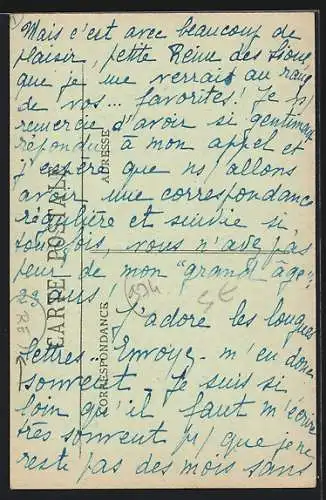 Mais c'est avec beaucoup de
plaisir, petite Reine des Sioux,
que je me verrais au rang
de vos... favorites! Je vs
remercie d'avoir si gentiment
répondu à mon appel et
j'espère que ns allons
avoir une correspondance
régulière et suivie si
toutefois, vous n'avez pas
peur de mon "grand âge":
29 ans!
J'adore les longues
lettres... Envoyez-m'en donc
souvent. Je suis si
loin qu'il faut m'écrire
très souvent pr que je ne
reste pas des mois sans
CARTE POSTALE
CORRESPONDANCE
ADRESSE
4€